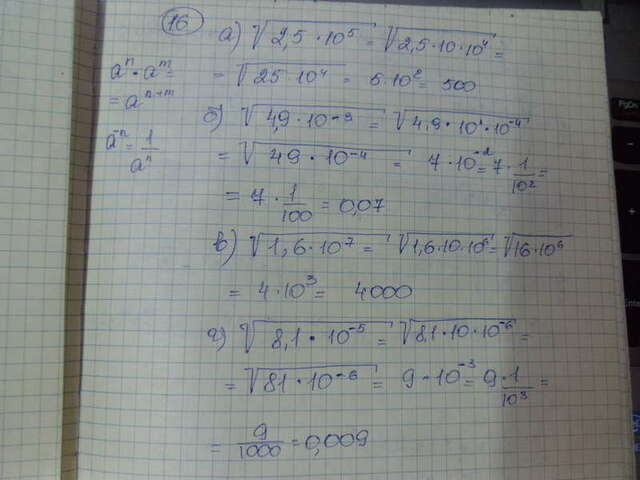 16
а) √2,5·10⁵ = √2,5·10·10⁴ =
= √25·10⁴ = 5·10² = 500
aⁿ·aᵐ =
= aⁿ⁺ᵐ
a⁻ⁿ = 1/aⁿ
б) √4,9·10⁻³ = √4,9·10¹·10⁻⁴
= √49·10⁻⁴ = 7·10⁻² = 7·1/10² =
= 7·1/100 = 0,07
в) √1,6·10⁷ = √1,6·10·10⁶ = √16·10⁶
= 4·10³ = 4000
г) √8,1·10⁻⁵ = √8,1·10·10⁻⁶ =
= √81·10⁻⁶ = 9·10⁻³ = 9·1/10³ =
= 9/1000 = 0,009